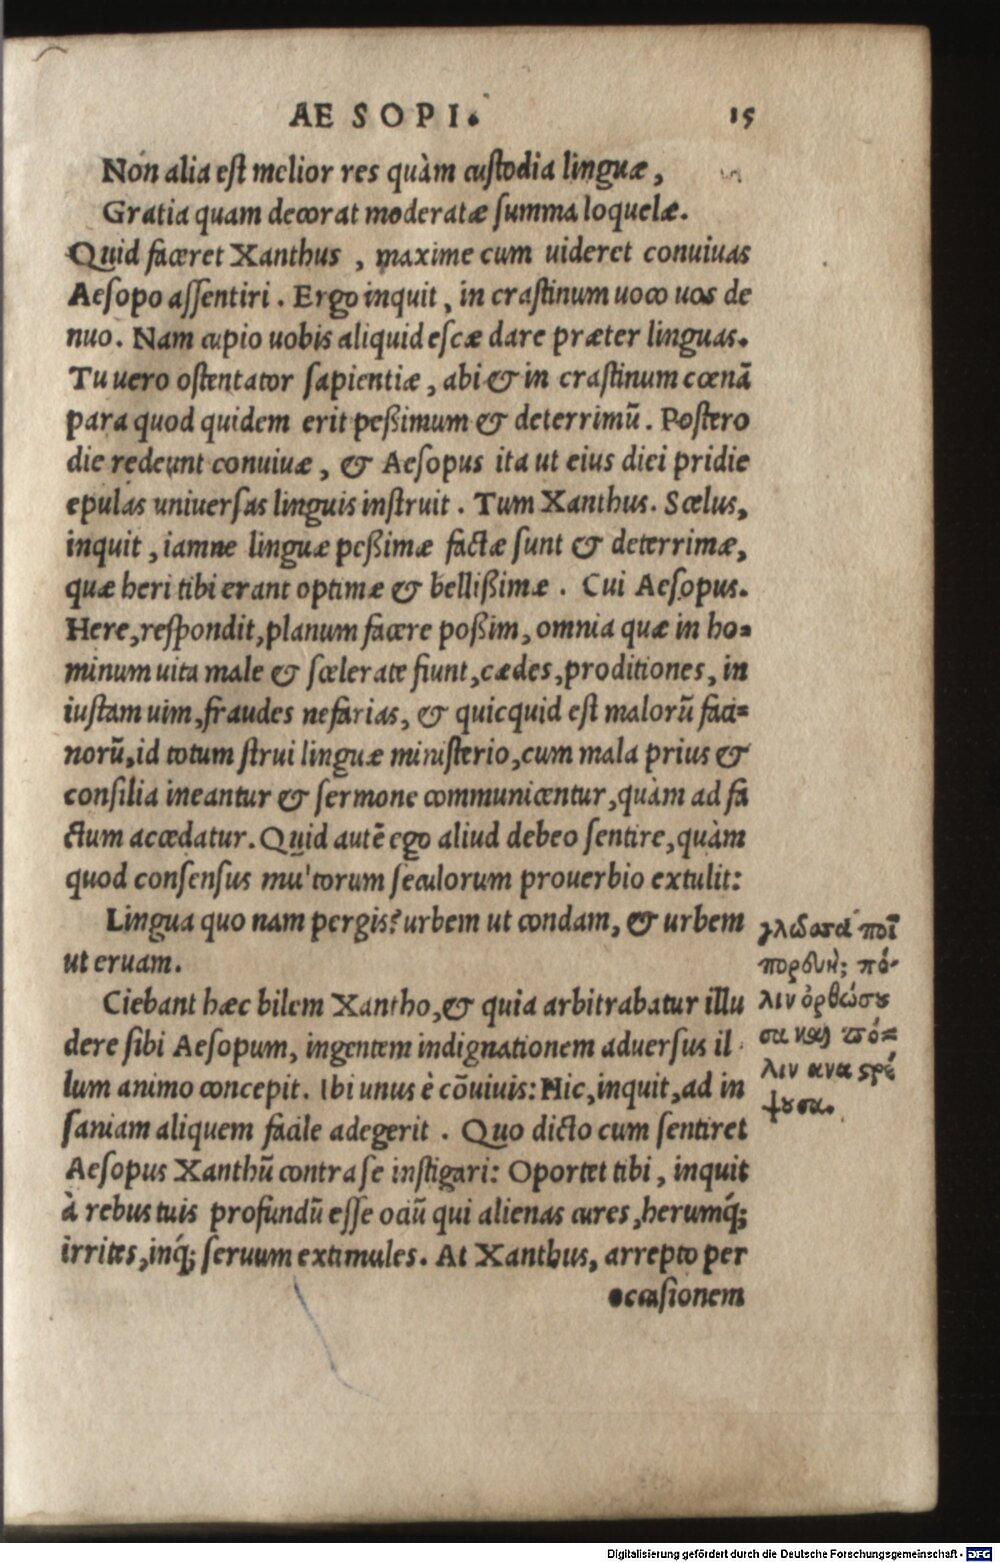 AE SOPI. 15
Non alia est melior res quàm custodia linguæ,
Gratia quam decorat moderatæ summa loquelæ.
Quid faceret Xanthus, maxime cum uideret conuiuas
Aesopo assentiri. Ergo inquit, in crastinum uoco uos de
nuo. Nam cupio uobis aliquid escæ dare præter linguas.
Tu uero ostentator sapientiæ, abi & in crastinum cœnã
para quod quidem erit peßimum & deterrimũ. Postero
die redeunt conuiuæ, & Aesopus ita ut eius diei pridie
epulas uniuersas linguis instruit. Tum Xanthus. Scelus,
inquit, iamne linguæ peßimæ factæ sunt & deterrimæ,
quæ heri tibi erant optimæ & bellißimæ. Cui Aesopus.
Here, respondit, planum facere poßim, omnia quæ in ho=
minum uita male & scelerate fiunt, cædes, proditiones, in
iustam uim, fraudes nefarias, & quicquid est malorũ faci=
norũ, id totum strui linguæ ministerio, cum mala prius &
consilia ineantur & sermone communicentur, quàm ad fa
ctum accedatur. Quid autẽ ego aliud debeo sentire, quàm
quod consensus mu'torum seculorum prouerbio extulit:
Lingua quo nam pergis? urbem ut condam, & urbem
ut eruam.
Ciebant hæc bilem Xantho, & quia arbitrabatur illu
dere sibi Aesopum, ingentem indignationem aduersus il
lum animo concepit. Ibi unus è cõuiuis: Hic, inquit, ad in
saniam aliquem facile adegerit. Quo dicto cum sentiret
Aesopus Xanthũ contra se instigari: Oportet tibi, inquit
à rebus tuis profundũ esse ociũ qui alienas cures, herumq́;
irrites, inq́; seruum extimules. At Xanthus, arrepto per
occasionem
γλῶσσα ποῖ
πορεύῃ; πό-
λιν ὀρθώσου
σα καὶ πό=
λιν ανα στρέ
ψουσα.
Digitalisierung gefördert durch die Deutsche Forschungsgemeinschaft - DFG